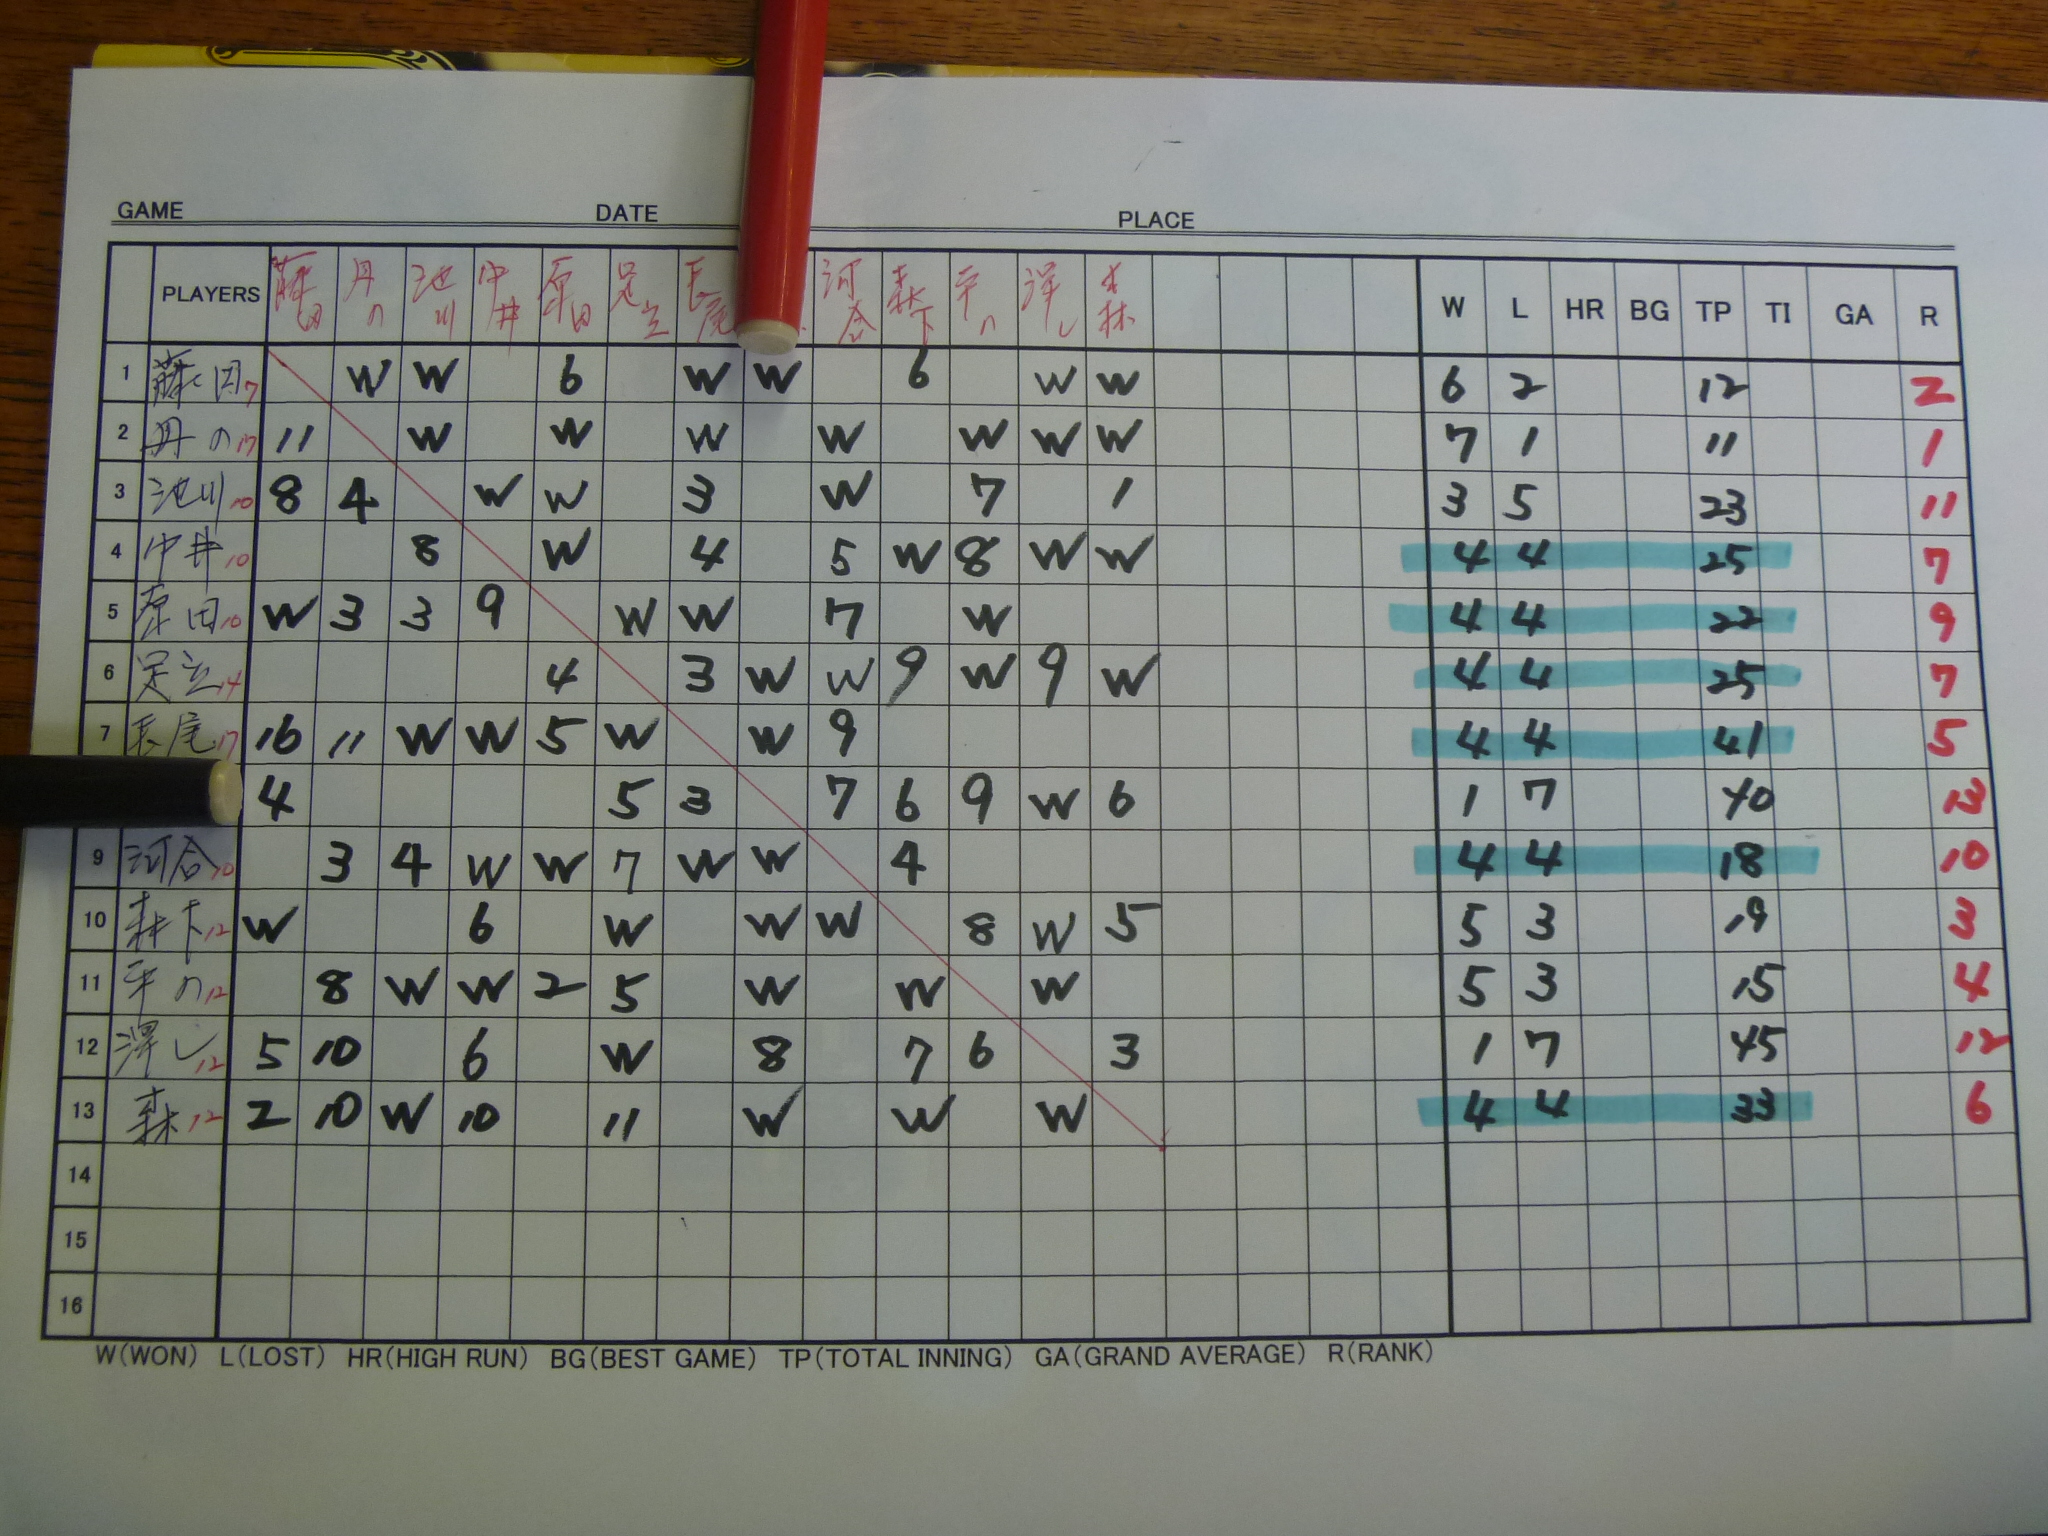 GAME DATE PLACE
PLAYERS 藤田 丹の 池川 中井 原田 足立 長尾 河合 森下 平の 澤し 森 W L HR BG TP TI GA R
1 藤田 7 W W 6 W W 6 W W 6 2 12 2
2 丹の 17 11 W W W W W W W 7 1 11 1
3 池川 10 8 4 W W 3 W 7 1 3 5 23 11
4 中井 10 8 W 4 5 W 8 W W 4 4 25 7
5 原田 10 W 3 3 9 W W 7 W 4 4 22 9
6 足立 14 4 3 W W 9 W 9 W 4 4 25 7
7 長尾 17 16 11 W W 5 W W 9 4 4 41 5
4 5 3 7 6 9 W 6 1 7 40 13
9 河合 10 3 4 W W 7 W W 4 4 4 18 10
10 森下 12 W 6 W W W 8 W 5 5 3 19 3
11 平の 12 8 W W 2 5 W W W 5 3 15 4
12 澤し 12 5 10 6 W 8 7 6 3 1 7 45 12
13 森 12 2 10 W 10 11 W W W 4 4 33 6
14
15
16
W(WON) L(LOST) HR(HIGH RUN) BG(BEST GAME) TP(TOTAL INNING) GA(GRAND AVERAGE) R(RANK)